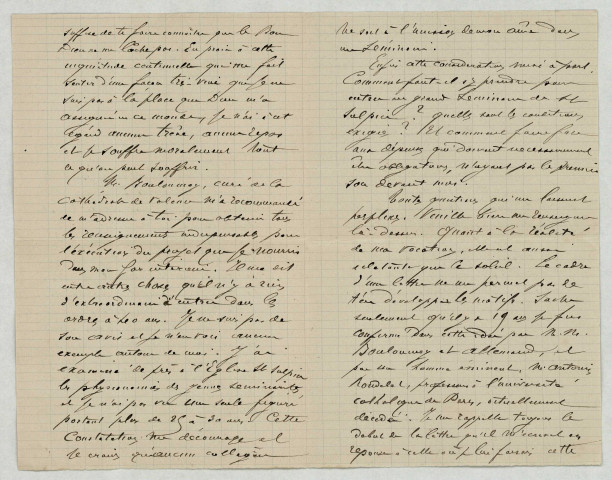 suffise de te faire connaître que le Bon
Dieu ne me lâche pas. En proie à cette
inquiétude continuelle qui me fait
sentir d'une façon très vive que je ne
suis pas à la place que Dieu m'a
assignée en ce monde, je n'ai à cet
égard aucune trêve, aucun repos
et je souffre moralement tout
ce qu'on peut souffrir.
M. Boulommoy, curé de la
Cathédrale de Valence m'a recommandé
de m'adresser à toi pour obtenir tous
les renseignements indispensables pour
l'exécution du projet que je nourris
dans mon for intérieur. Il m'a dit
entre autre chose qu'il n'y a rien
d'extraordinaire d'entrer dans les
ordres à 40 ans. Je ne suis pas de
son avis et je n'en vois aucun
exemple autour de moi. J'ai
examiné de près à l'Eglise St Sulpice
les physionomies des jeunes séminaristes
et je n'ai pas vu une seule figure
portant plus de 25 à 30 ans. Cette
Constatation me décourage et
je crains qu'aucun collègue
ne soit à l'unisson de mon âme dans
un Séminaire.
Enfin cette considération mise à part,
Comment faut-il s'y prendre pour
entrer au grand Séminaire de St
Sulpice? quelles sont les conditions
exigées? Et comment faire face
aux dépenses qui doivent nécessairement
être obligatoires, n'ayant pas le premier
sou devant moi.
Toutes questions qui me laissent
perplexe. Veuille bien me renseigner
là-dessus. Quant à la réalité
de ma vocation, elle est aussi
éclatante que le soleil. Le cadre
d'une lettre ne me permet pas de
t'en développer les motifs. Sache
seulement qu'il y a 19 ans je fus
confirmé dans cette idée par M.M.
Boulommoy et Allemand, et
par un homme éminent, M. Antonin
Rondelet, professeur à l'université
catholique de Paris, actuellement
décédé. Je me rappelle toujours le
début de la lettre qu'il m'envoya en
réponse à celle où je lui faisais cette